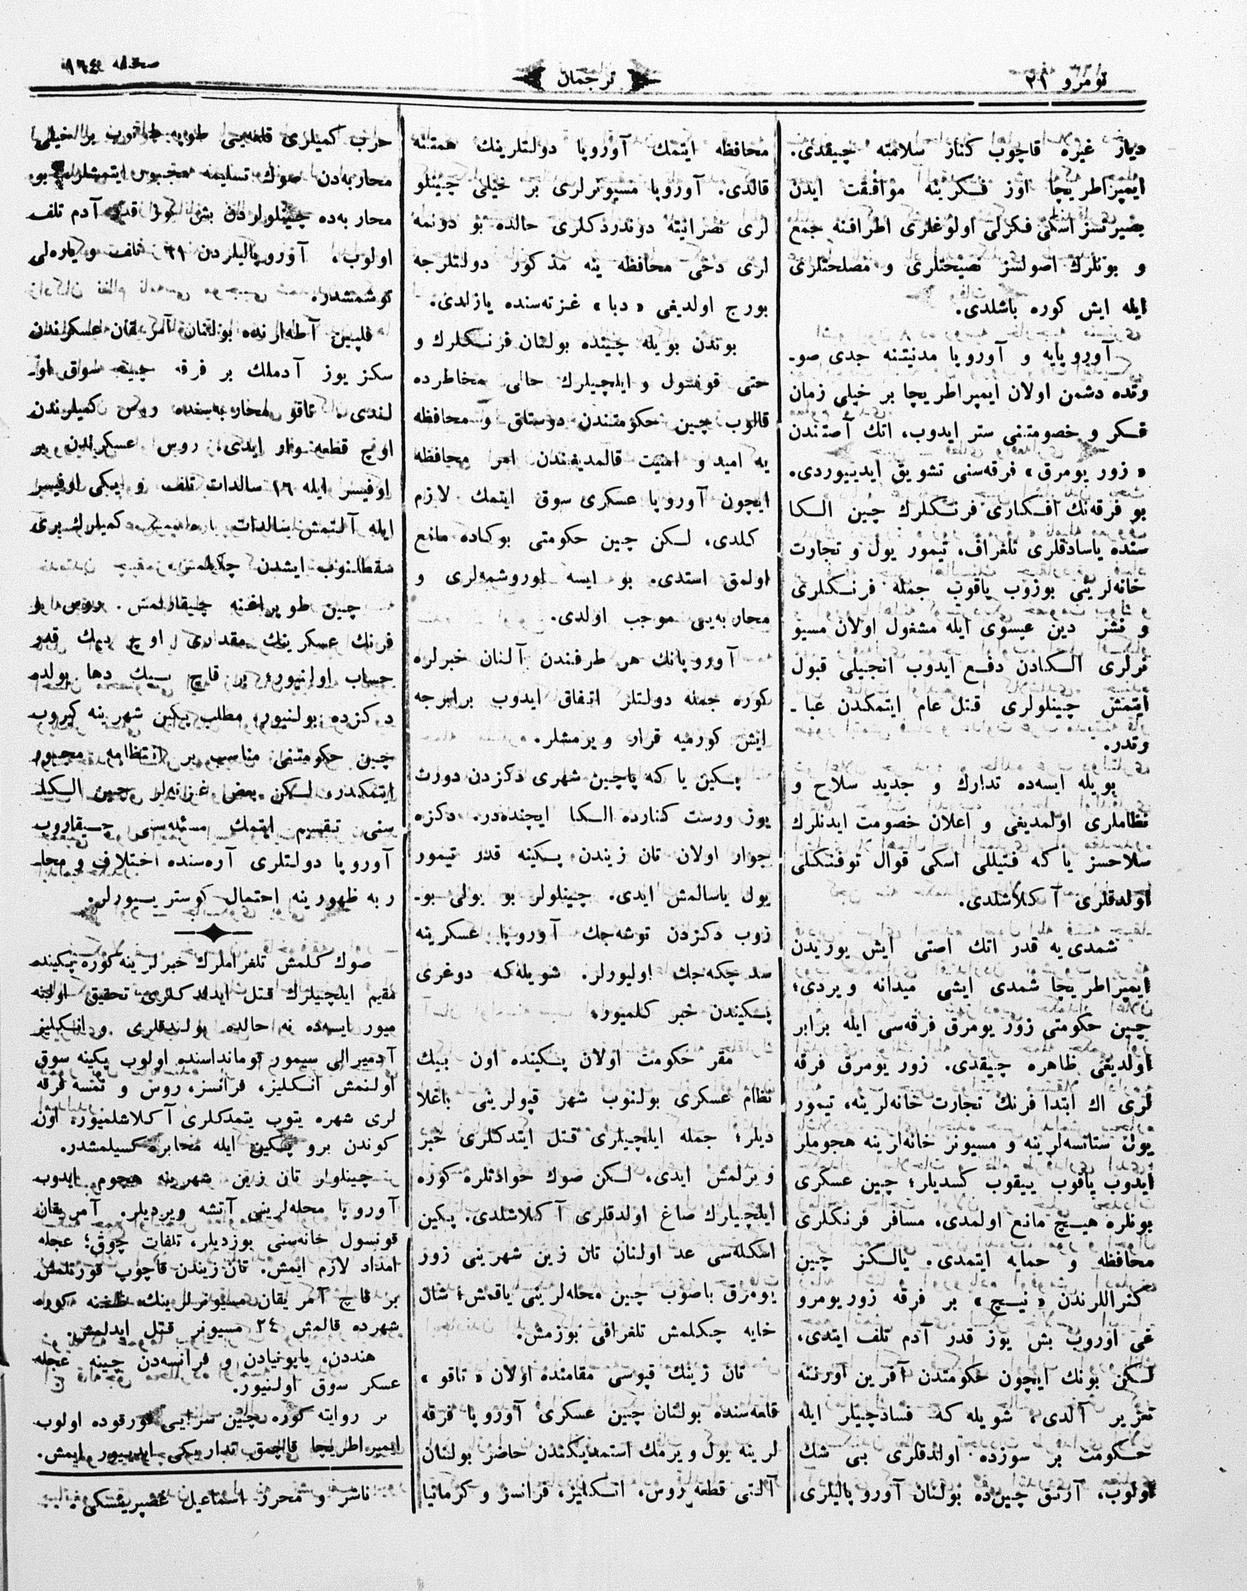 نومرو ٢١
ترجمان
صحفه
دیار غیره قاچوب کنار سلامته چیقدی.
ایمپراطریچا اوز فکرینه موافقت ایدن
بصیرتسز اسکی فکرلی اولوغلری اطرافنه جمع
و بونلرك اصولسز نصیحتلری و مصلحتلری
ایله ایش کوره باشلدی.
آوروپایه و آوروپا مدنیتنه جدی صو۔
رتده دشمن اولان ایمپراطریچا بر خیلی زمان
فکر و خصومتنی ستر ایدوب، اتك آصتندن
« زور یومرق » فرقه‌سنی تشویق ایدییوردی.
بو فرقه‌نك افکاری فرنکلرك چین الکا
سنده یاسادقلری تلغراف، تیمور یول و تجارت
خانه‌لرینی بوزوب یاقوب جمله فرنکلری
و نشر دین عیسوی ایله مشغول اولان مسیو
نرلری الکادن دفع ایدوب انجیلی قبول
ایتمش چینلولری قتل عام ایتمکدن عبا۔
رتدر.
بویله ایسه‌ده تدارك و جدید سلاح و
نظاملری اولمدیغی و اعلان خصومت ایدنلرك
سلاحسز یا که فتیللی اسکی قوال توفنکلی
اولدقلری آکلاشلدی.
شمدی‌یه قدر اتك اصتی ایش یوریدن
ایمپراطریچا شمدی ایشی میدانه ویردی؛
چین حکومتی زور یومرق فرقه‌سی ایله برابر
اولدیغی ظاهره چیقدی. زور یومرق فرقه
لری اك ابتدا فرنك تجارت خانه‌لرینه، تیمور
یول ستانسه‌لرینه و مسیونر خانه‌لرینه هجوملر
ایدوب یاقوب ییقوب کسدیلر؛ چین عسکری
بونلره هیچ مانع اولمدی، مسافر فرنکلری
محافظه و حمایه ایتمدی. یالکز چین
کنراللرندن « نیچ » بر فرقه زور یومرو
غی اوروب بش یوز قدر آدم تلف ایتدی،
لکن بونك ایچون حکومتدن آفرین اورننه
تعزیر آلدی؛ شویله که فسادجیلر ایله
حکومت بر سوزده اولدقلری بی شك
اولوب، آرتق چین‌ده بولنان آوروپالیلری
محافظه ایتمك آوروپا دولتلرینك همتنه
قالدی. آوروپا مسیونرلری بر خیلی چینلو
لری نصرانیته دوندردکلری حالده بو دونمه
لری دخی محافظه ینه مذکور دولتلرجه
بورج اولدیغی « دبا » غزته‌سنده یازلدی.
بوندن بویله چینده بولنان فرنکلرك و
حتی قونسول و ایلچیلرك حالی مخاطرده
قالوب چین حکومتندن دوستلق و محافظه
یه امید و امنیت قالمدیغندن امر محافظه
ایچون آوروپا عسکری سوق ایتمك لازم
کلدی. لکن چین حکومتی بوکاده مانع
اولمق استدی. بو ایسه اوروشمه‌لری و
محاربه‌یی موجب اولدی.
آوروپانك هر طرفندن آلنان خبرلره
کوره جمله دولتلر اتفاق ایدوب برابرجه
ایش کورمیه قرار ویرمشلر.
پکین یا که پاچین شهری دکزدن دورت
یوز ورست کنارده الکا ایچنده‌در. دکزه
جوار اولان تان زیندن پکینه قدر تیمور
یول یاسالمش ایدی. چینلولر بو یولی بو۔
زوب دکزدن توشه‌جك آوروپا عسکرینه
سد چکه‌جك اولیورلر. شویله‌که دوغری
پکیندن خبر کلمیور.
مقر حکومت اولان پکینده اون بیك
نظام عسکری بولنوب شهر قپولرینی باغلا
دیلر؛ جمله ایلچیلری قتل ایتدکلری خبر
ویرلمش ایدی. لکن صوك حوادثلره کوره
ایلچیلرك صاغ اولدقلری آکلاشلدی. پکین
اسکله‌سی عد اولنان تان زین شهرینی زور
یومرق باصوب چین محله‌لرینی یاقمش؛ شان
خایه چکلمش تلغرافی بوزمش.
تان زینك قپوسی مقامنده اولان « تاقو »
قلعه‌سنده بولنان چین عسکری آوروپا فرقه
لرینه یول ویرمك استمدیکندن حاضر بولنان
آلتی قطعه روس، انکلیز، فرانسز و گرمانیا
حرب کمیلری قلعه‌یی طوپه طوتوب بر خیلی
محاربه‌دن صوك تسلیمه مجبور ایتمشلر. بو
محاربه‌ده چینلولردن بش یوز قدر آدم تلف
اولوب، آوروپالیلردن ٢١ تلف و یاره‌لی
توشمشدر.
فلیپین آطه‌لرنده بولنان آمریقان عسکرندن
سکز یوز آدملك بر فرقه چینه سوق او
لندی. تاقو محاربه‌سنده روس کمیلرندن
اوچ قطعه وار ایدی. روس عسکرندن بر
اوفیسر ایله ١٦ سالدات تلف و ایکی اوفیسر
ایله آلتمش سالدات یاره‌لی کمیلرك بری
سقطلنوب ایشدن چکلمش.
چین طوپراغنه چیقارلمش روس و
فرنك عسکرینك مقداری اوچ بیك قدر
حساب اولنیور؛ بر قاچ بیك دها یولده
دکزده بولنیور. مطلب پکین شهرینه کیروب
چین حکومتنی مناسب بر انتظامه مجبور
ایتمکدر. لکن بعض غزتیلر چین الکا
سنی تقسیم ایتمك مسئله‌سی چیقاروب
آوروپا دولتلری آره‌سنده اختلاف و محا
ربه ظهورینه احتمال کوسترییورلر.
صوك کلمش تلغراملرك خبرلرینه کوره پکینده
مقیم ایلچیلرك قتل ایدلدکلری تحقیق اولنه
میور ایسه‌ده نه حالده بولندقلری و انکلیز
آدمیرالی سیمور قوماندا‌سنده اولوب پکینه سوق
اولنمش انکلیز، فرانسز، روس و نمسه فرقه
لری شهره یتوب یتمدکلری آکلاشلمیور. اون
کوندن برو پکین ایله مخابره کسیلمشدر.
چینلولر تان زین شهرینه هجوم ایدوب
آوروپا محله‌لرینی آتشه ویردیلر. آمریقان
قونسول خانه‌سنی بوزدیلر، تلفات چوق؛ عجله
امداد لازم ایمش. تان زیندن قاچوب قورتلمش
بر قاچ آمریقان مسیونرلرینك ظننه کوره
شهرده قالمش ٢٤ مسیونر قتل ایدلمش.
هنددن، یاپونیادن و فرانسه‌دن چینه عجله
عسکر سوق اولنیور.
بر روایته کوره چین سرایی قورقوده اولوب
ایمپراطریچا قاچمق تدارکی ایدییور ایمش.
ناشر و محرر اسماعیل غصپرینسکی.